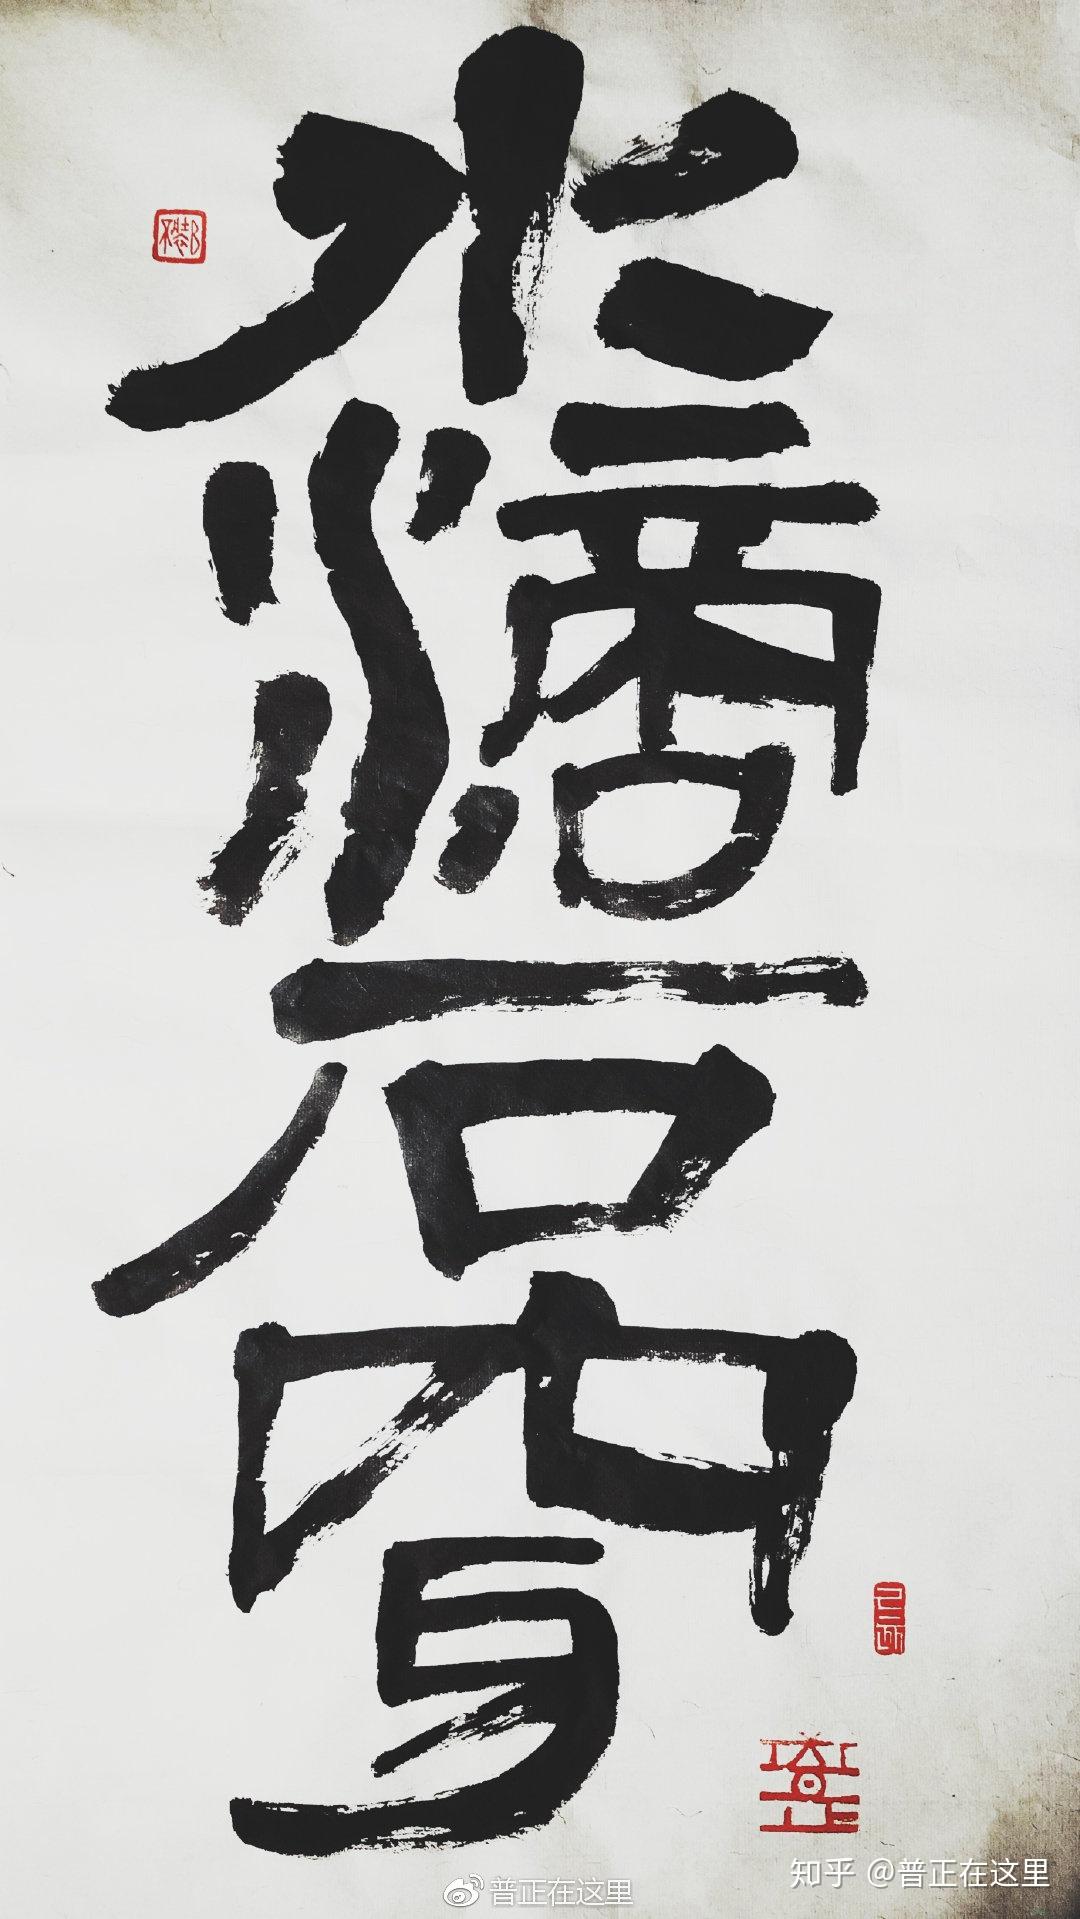 水滴石穿
知乎 @普正在这里
普正在这里